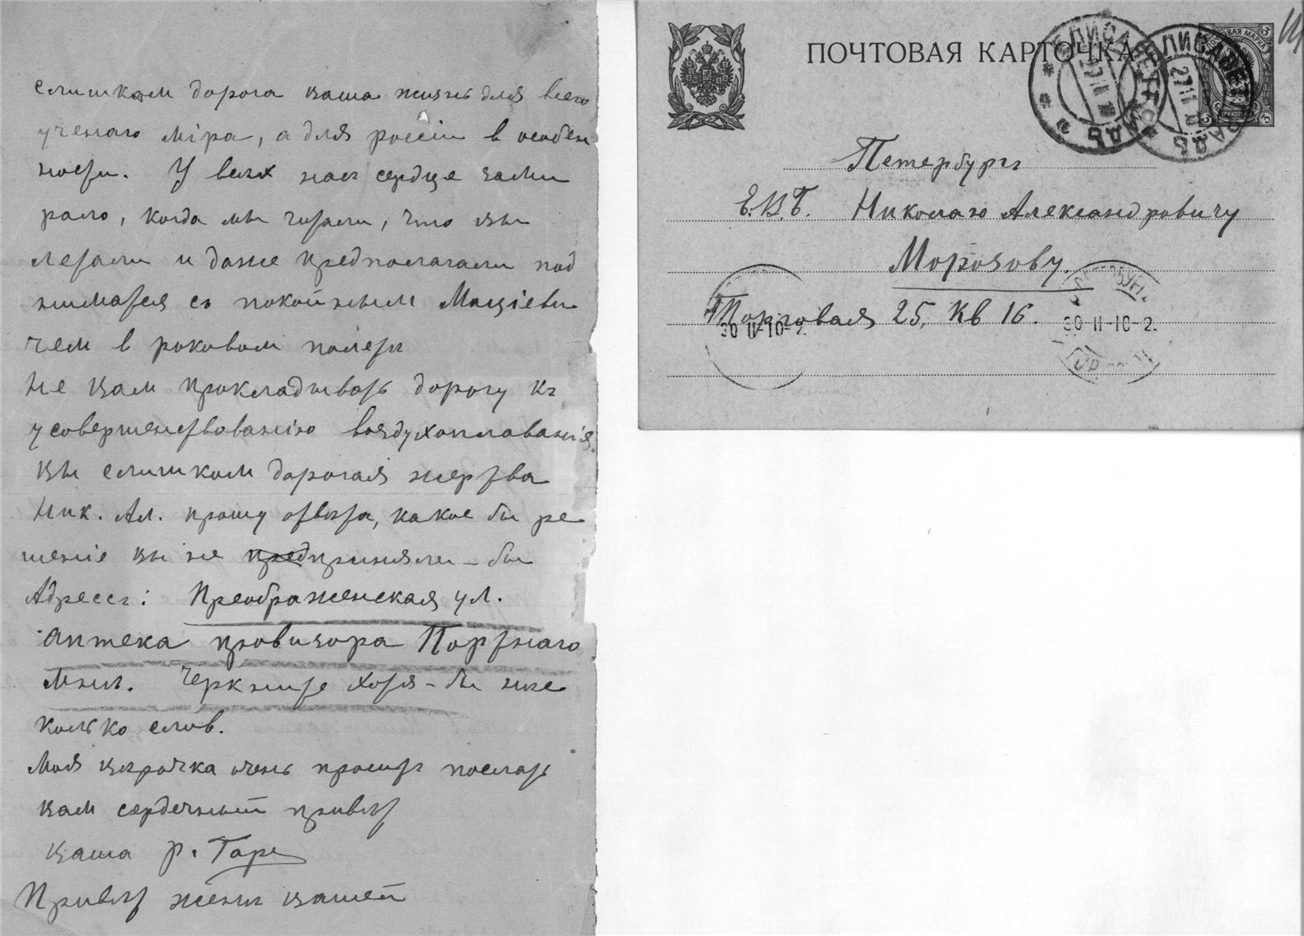 слишком дорога ваша жизнь для всего
ученаго мiра, а для россiи в особен
ности. У всех нас сердце зами
рало, когда мы читали, что вы
летали и даже предполагали под
ниматся съ покойным Мацiеви
чем в роковом полети
Не вам прокладывать дорогу къ
усовершенствованiю воздухоплаванiя.
вы слишком дорогая жертва
Ник. Ал. прошу ответа, какое бы ре
шенiе вы не предприняли-бы
Адрессъ: Преображенская ул.
аптека провизора Портнаго
Мнъ. Черкните хотя-бы нес
колько слов.
Моя
очень просит послать
вам сердечный привет
ваша р. Гар
Привет жены вашей
ПОЧТОВАЯ КАРТОЧКА
ЕЛИСАВЕТГРАДЪ
27 11 10
ЕЛИСАВЕТГРАДЪ
27 11 10
Петербургъ
Е.В.Б. Николаю Александровичу
Морозову.
Торговая 25, Кв 16.
30 11-10-2.
30 11-10-2.